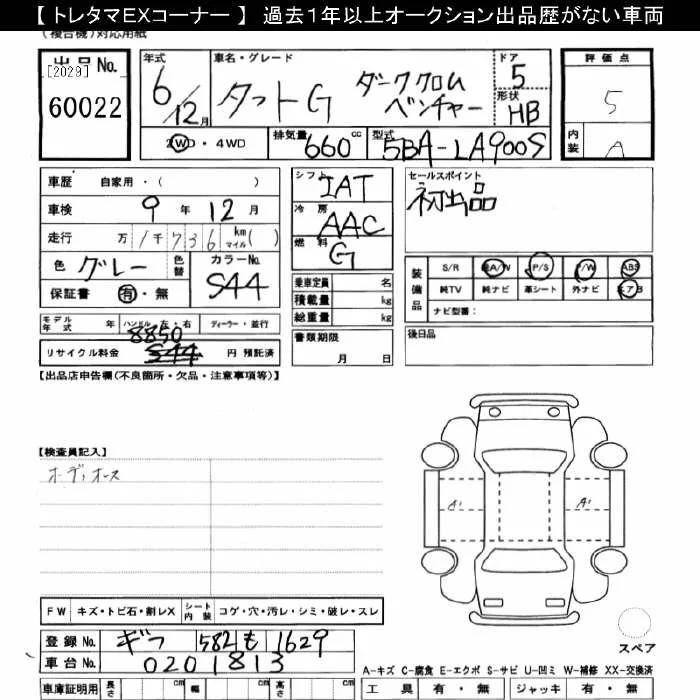 【 トレタマEXコーナー 】 過去1年以上オークション出品歴がない車両
(複合機)対応用紙
出品No.
[2029]
60022
年式
6/12月
車名・グレード
タフトG ダーククロムベンチャー
ドア
5
形状
HB
評価点
5
内装
A
2WD・4WD
排気量
660 cc
型式
5BA-LA900S
車歴 自家用・( )
車検 9年 12月
走行 万 1千 736 km マイル( )
色 グレー
色替
カラーNo.
S44
保証書 有・無
シフト
IAT
冷房
AAC
燃料
G
乗車定員 名
積載量 kg
総重量 kg
セールスポイント
初出品
装備品
S/R A/W P/S P/W ABS
純TV 純ナビ 革シート 外ナビ エアB
ナビ型番:
モデル年式 年
ハンドル 左・右
ディーラー・並行
リサイクル料金 8850 S44 円 預託済
書類期限
月 日
後日品
【出品店申告欄(不良箇所・欠品・注意事項等)】
【検査員記入】
ボーディオース
A1
A1
FW キズ・トビ石・割レX
シート内装 コゲ・穴・汚レ・シミ・破レ・スレ
登録No. ギフ 582 も 1629
車台No. 0201813
スペア
A-キズ C-腐食 E-エクボ S-サビ U-凹ミ W-補修 XX-交換済
車庫証明用 長さ cm 幅 cm 高さ cm
工具 有・無 ジャッキ 有・無